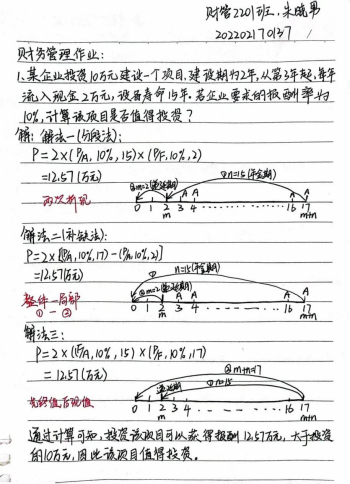 财管2201班,朱晓男
202202170137
财务管理作业:
1.某企业投资10万元建设一个项目,建设期为2年,从第3年起,每年
流入现金2万元,设备寿命15年。若企业要求的报酬率为
10%,计算该项目是否值得投资?
解: 解法一(分段法):
P=2×(P/A,10%,15)×(P/F,10%,2)
=12.57(万元)
两次折现
②m=2(递延期)
①n=15(年金期)
A A A A
0 1 2 3 4 ········ 16 17
m m+n
解法二(补缺法):
P=2×[(P/A,10%,17)-(P/A,10%,2)]
=12.57(万元)
整体-局部
① - ②
①
n=15(年金期)
②m=2(递延期)
A A A A
0 1 2 3 4 ········ 16 17
m m+n
解法三:
P=2×(F/A,10%,15)×(P/F,10%,17)
=12.57(万元)
先终值后现值
②m+n=17
①n=15
递延期
0 1 2 3 4 ········ 16 17
m m+n
通过计算可知,投资该项目可以获得报酬12.57万元,大于投资
的10万元,因此该项目值得投资。